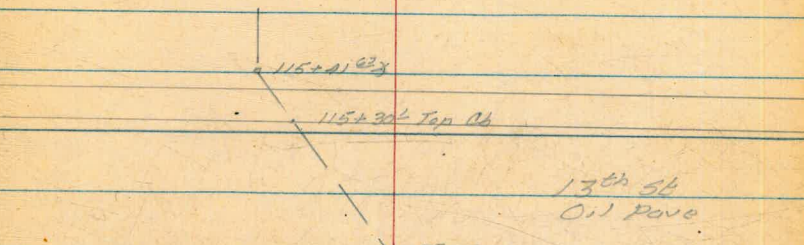 115+41 63
115+30 Top Cb
13th St
Oil Pave